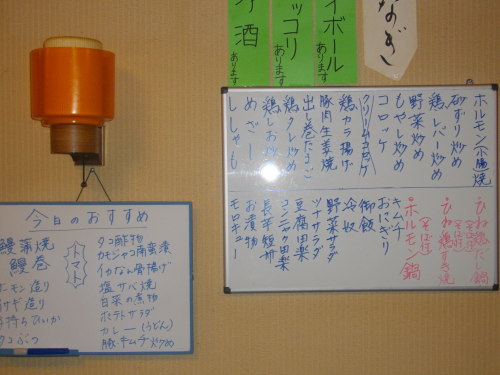 なぎ
イボール
あります
ッコリ
あります
酒
あります
ホルモン
砂ずり炒め
鶏レバー炒め
野菜炒め
もやし炒め
コロッケ
クリームコロッケ
鶏カラ揚げ
豚肉生姜焼
出し巻たまご
鶏タレ炒め
鶏しお炒め
めざし
ししゃも
ひね鶏だし鍋
そば付
ひね鶏すき焼
そば付
ホルモン鍋
そば付
キムチ
おにぎり
御飯
冷奴
野菜サラダ
ツナサラダ
豆腐田楽
コンニャク田楽
長芋短冊
お漬物
モロキュー
今日のおすすめ
鰻蒲焼
鰻巻
トマト
造り
造り
タコぶつ
タコ酢物
カモシャコ南蛮漬
イカなん骨揚げ
塩サバ焼
白菜の煮物
ポテトサラダ
カレー(うどん)
豚キムチ炒め